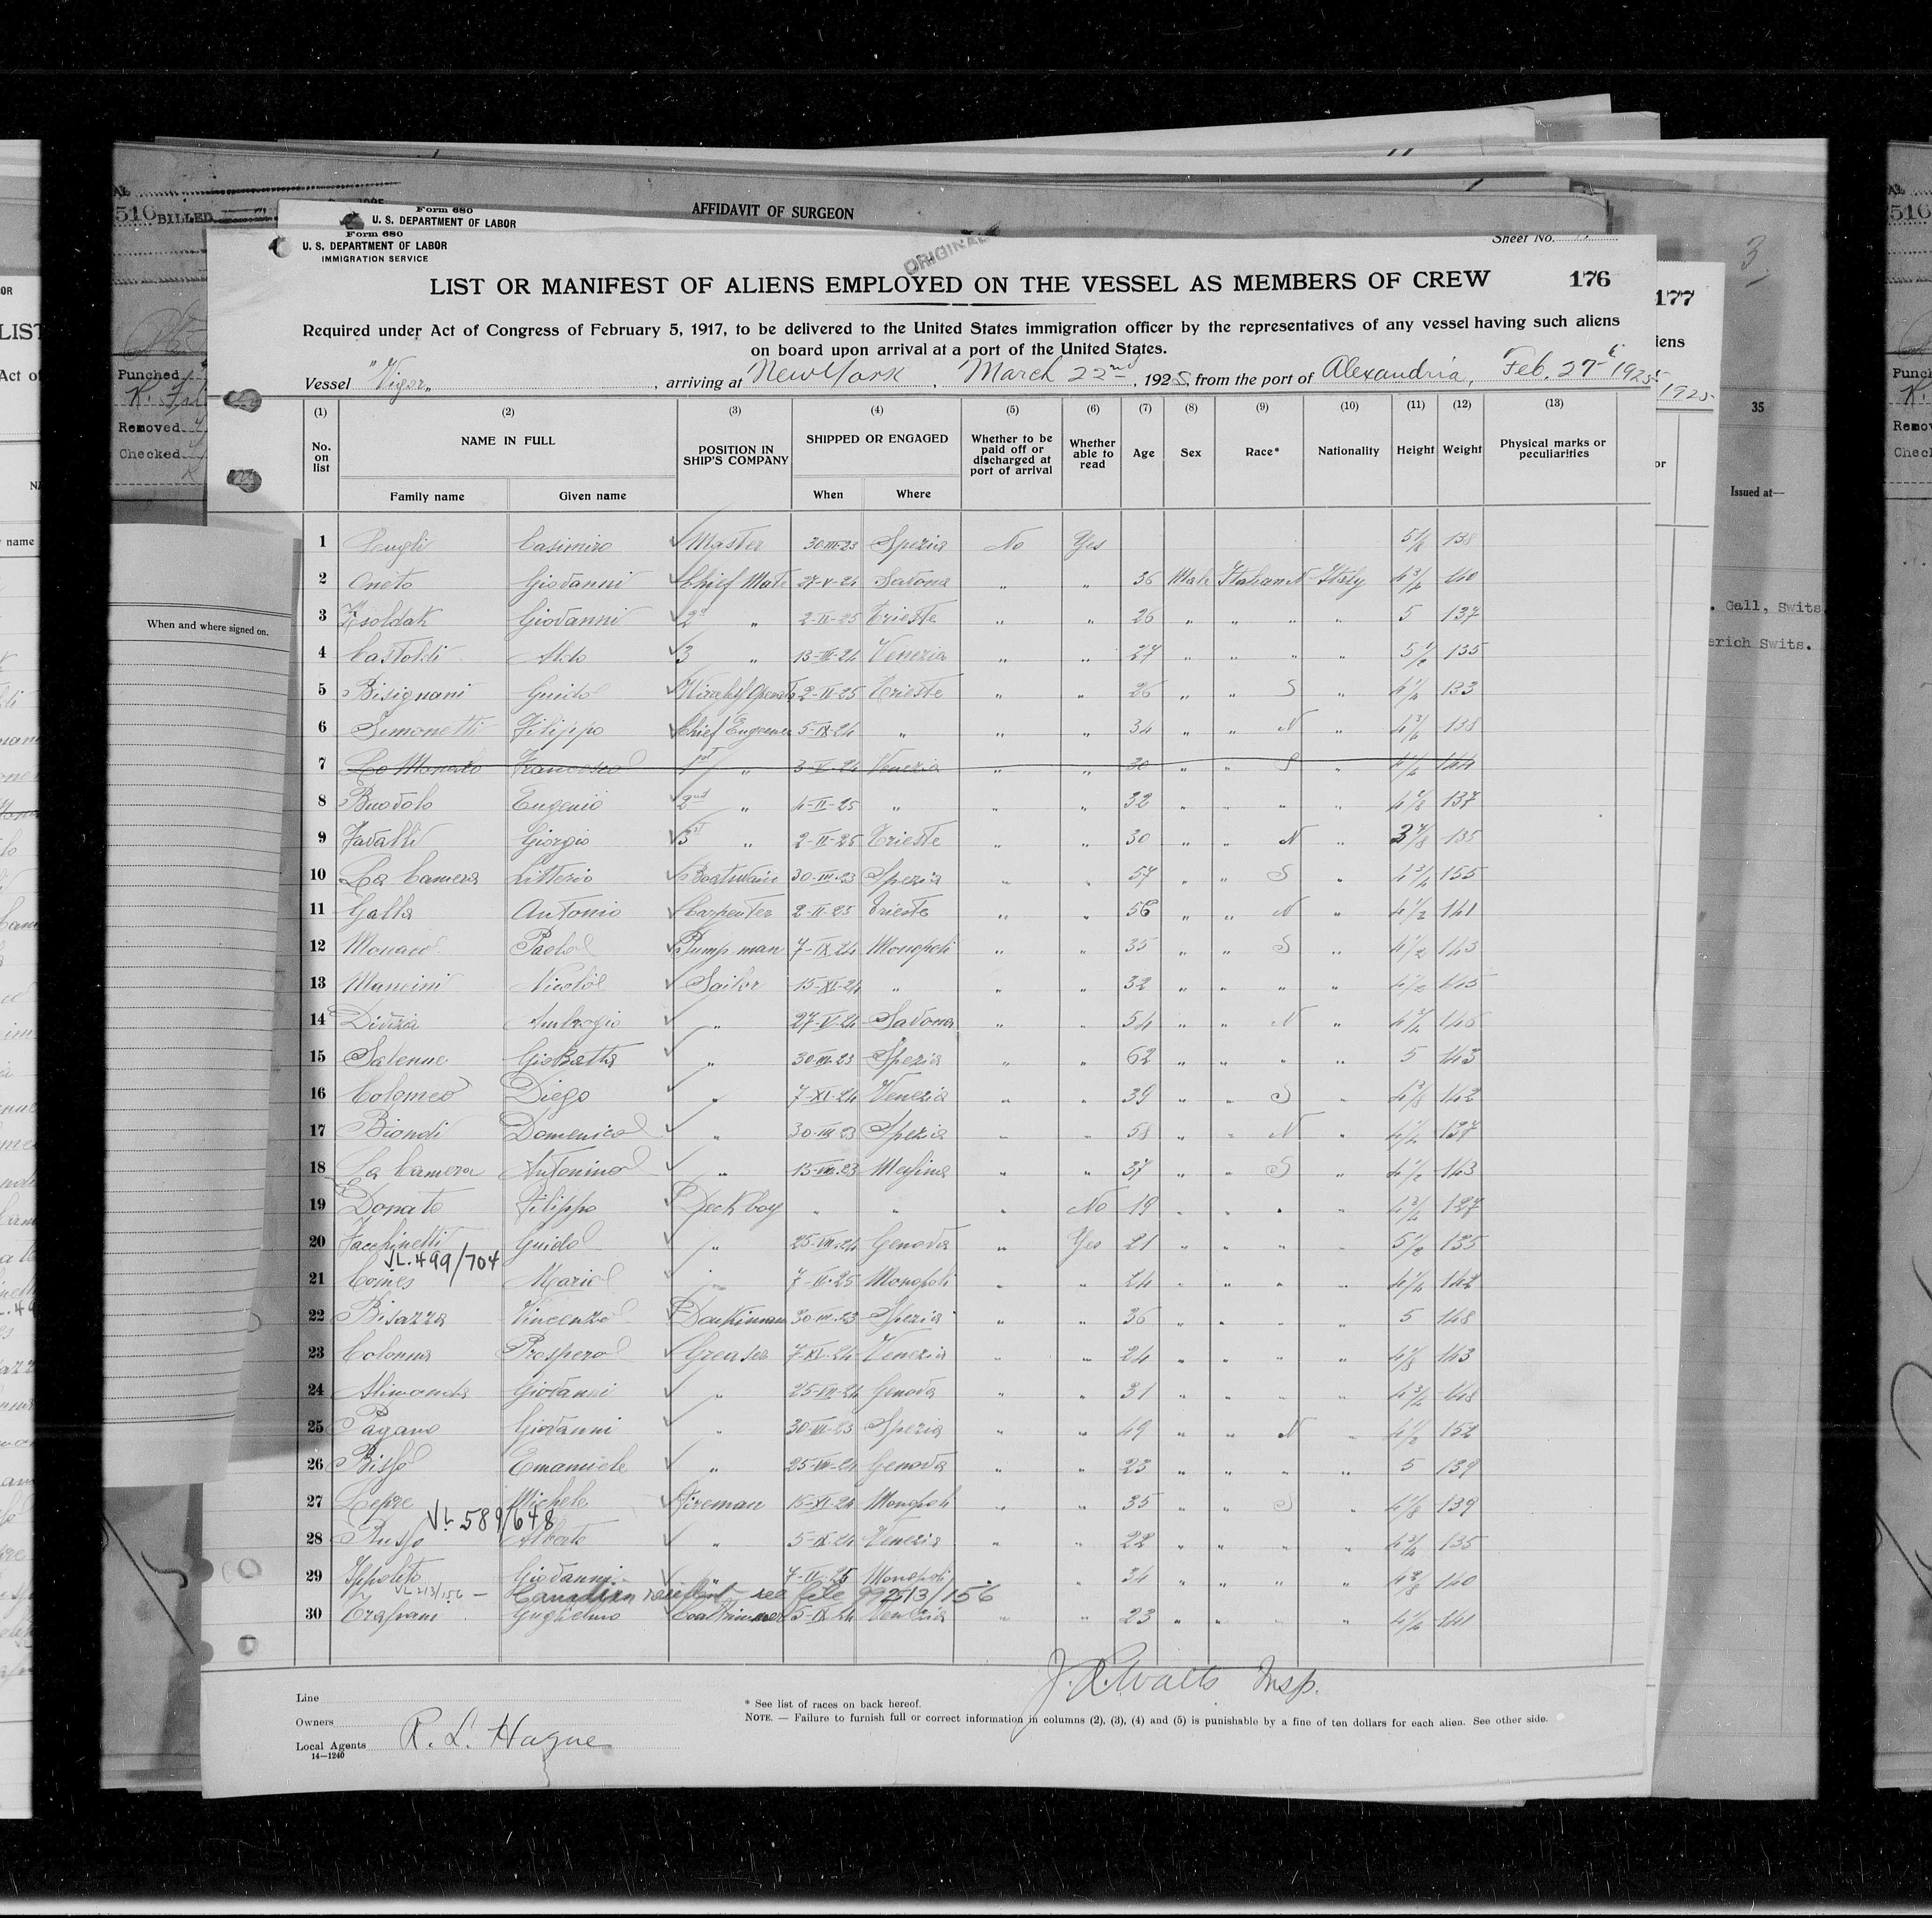 AFFIDAVIT OF SURGEON
516 BILLED
Form 680
U. S. DEPARTMENT OF LABOR
Form 680
U. S. DEPARTMENT OF LABOR
IMMIGRATION SERVICE
ORIGINAL
Sheet No.
LIST OR MANIFEST OF ALIENS EMPLOYED ON THE VESSEL AS MEMBERS OF CREW 176
177
Required under Act of Congress of February 5, 1917, to be delivered to the United States immigration officer by the representatives of any vessel having such aliens
on board upon arrival at a port of the United States.
Vessel "Vigor", arriving at New York, March 22nd, 1925, from the port of Alexandria, Feb. 27th 1925
(1) (2) (3) (4) (5) (6) (7) (8) (9) (10) (11) (12) (13)
No. on list NAME IN FULL POSITION IN SHIP'S COMPANY SHIPPED OR ENGAGED Whether to be paid off or discharged at port of arrival Whether able to read Age Sex Race* Nationality Height Weight Physical marks or peculiarities
Family name Given name When Where
1 Casimiro Master 30-III-23 Spezia No Yes 138
2 Oneto Giovanni Chief Mate 27-V-24 Savona " " 36 Male Italian N Italy 4 3/4 140
3 Giovanni 2d " 2-II-25 Trieste " " 26 " " " " 5 137
4 Castoldi Aldo 3 " 13-III-24 Venezia " " 27 " " " " 5 1/2 135
5 Bisignani Guido 2-II-25 Trieste " " 26 " " S " 4 1/2 133
6 Simonetti Filippo Chief Engineer 5-IX-24 " " " 34 " " N " 138
7 Lo Monaco Francesco 1st " 3-V-24 Venezia " " 30 " " S " 144
8 Buodolo Eugenio 2nd " 4-II-25 " " " 32 " " " " 137
9 Favalli Giorgio 3 " 2-II-25 Trieste " " 30 " " N " 3 7/8 135
10 La Camera Litterio Boatswain 30-III-23 Spezia " " 57 " " S " 4 3/4 155
11 Galla Antonio Carpenter 2-II-25 Trieste " " 56 " " N " 4 1/2 141
12 Monaco Paolo Pump man 7-IX-24 Monopoli " " 35 " " S " 4 1/2 143
13 Mancini Nicola Sailor 15-XI-24 " " " 32 " " " " 4 1/2 145
14 Divizia Ambrogio " 27-V-24 Savona " " 54 " " N " 146
15 GioBatta " 30-III-23 Spezia " " 62 " " " " 5 143
16 Colomeo Diego " 7-XI-24 Venezia " " 39 " " S " 142
17 Biondi Domenico " 30-III-23 Spezia " " 58 " " N " 4 1/2 137
18 La Camera Antonino " Messina " " 37 " " S " 4 1/2 143
19 Donato Filippo Deck boy " " " No 19 " " " " 4 3/4 127
20 Facchinetti Guido " 25-VII-24 Genova " Yes 21 " " " " 5 1/2 135
VL.499/704
21 Comes Mario " 7-II-25 Monopoli " " 24 " " " " 142
22 Bisazza Vincenzo Donkeyman 30-III-23 Spezia " " 36 " " " " 5 148
23 Colonna Prospero Greaser 7-XI-24 Venezia " " 24 " " " " 143
24 Alimonda Giovanni " 25-VII-24 Genova " " 31 " " " " 4 3/4 148
25 Pagano Giovanni " 30-III-23 Spezia " " 49 " " N " 4 1/2 152
26 Bisso Emanuele " 25-VII-24 Genova " " 23 " " " " 5 139
27 Lepre Michele Fireman 15-XI-24 Monopoli " " 35 " " S " 139
VL 589/648
28 Russo Alberto " 5-IX-24 Venezia " " 22 " " " " 4 3/4 135
29 Ippolito Giovanni " 7-II-25 Monopoli " " 34 " " " " 140
VL 213/156 — Canadian resident — see file 99213/156
30 Trapani Guglielmo Coaltrimmer 5-IX-24 Venezia " " 23 " " " " 141
J. L. Watts Insp.
Line
Owners
Local Agents R. L. Hague
14—1240
* See list of races on back hereof.
NOTE. — Failure to furnish full or correct information in columns (2), (3), (4) and (5) is punishable by a fine of ten dollars for each alien. See other side.
Punched
Removed
Checked
When and where signed on.
3
35
Issued at—
Gall, Swits.
erich Swits.
1925